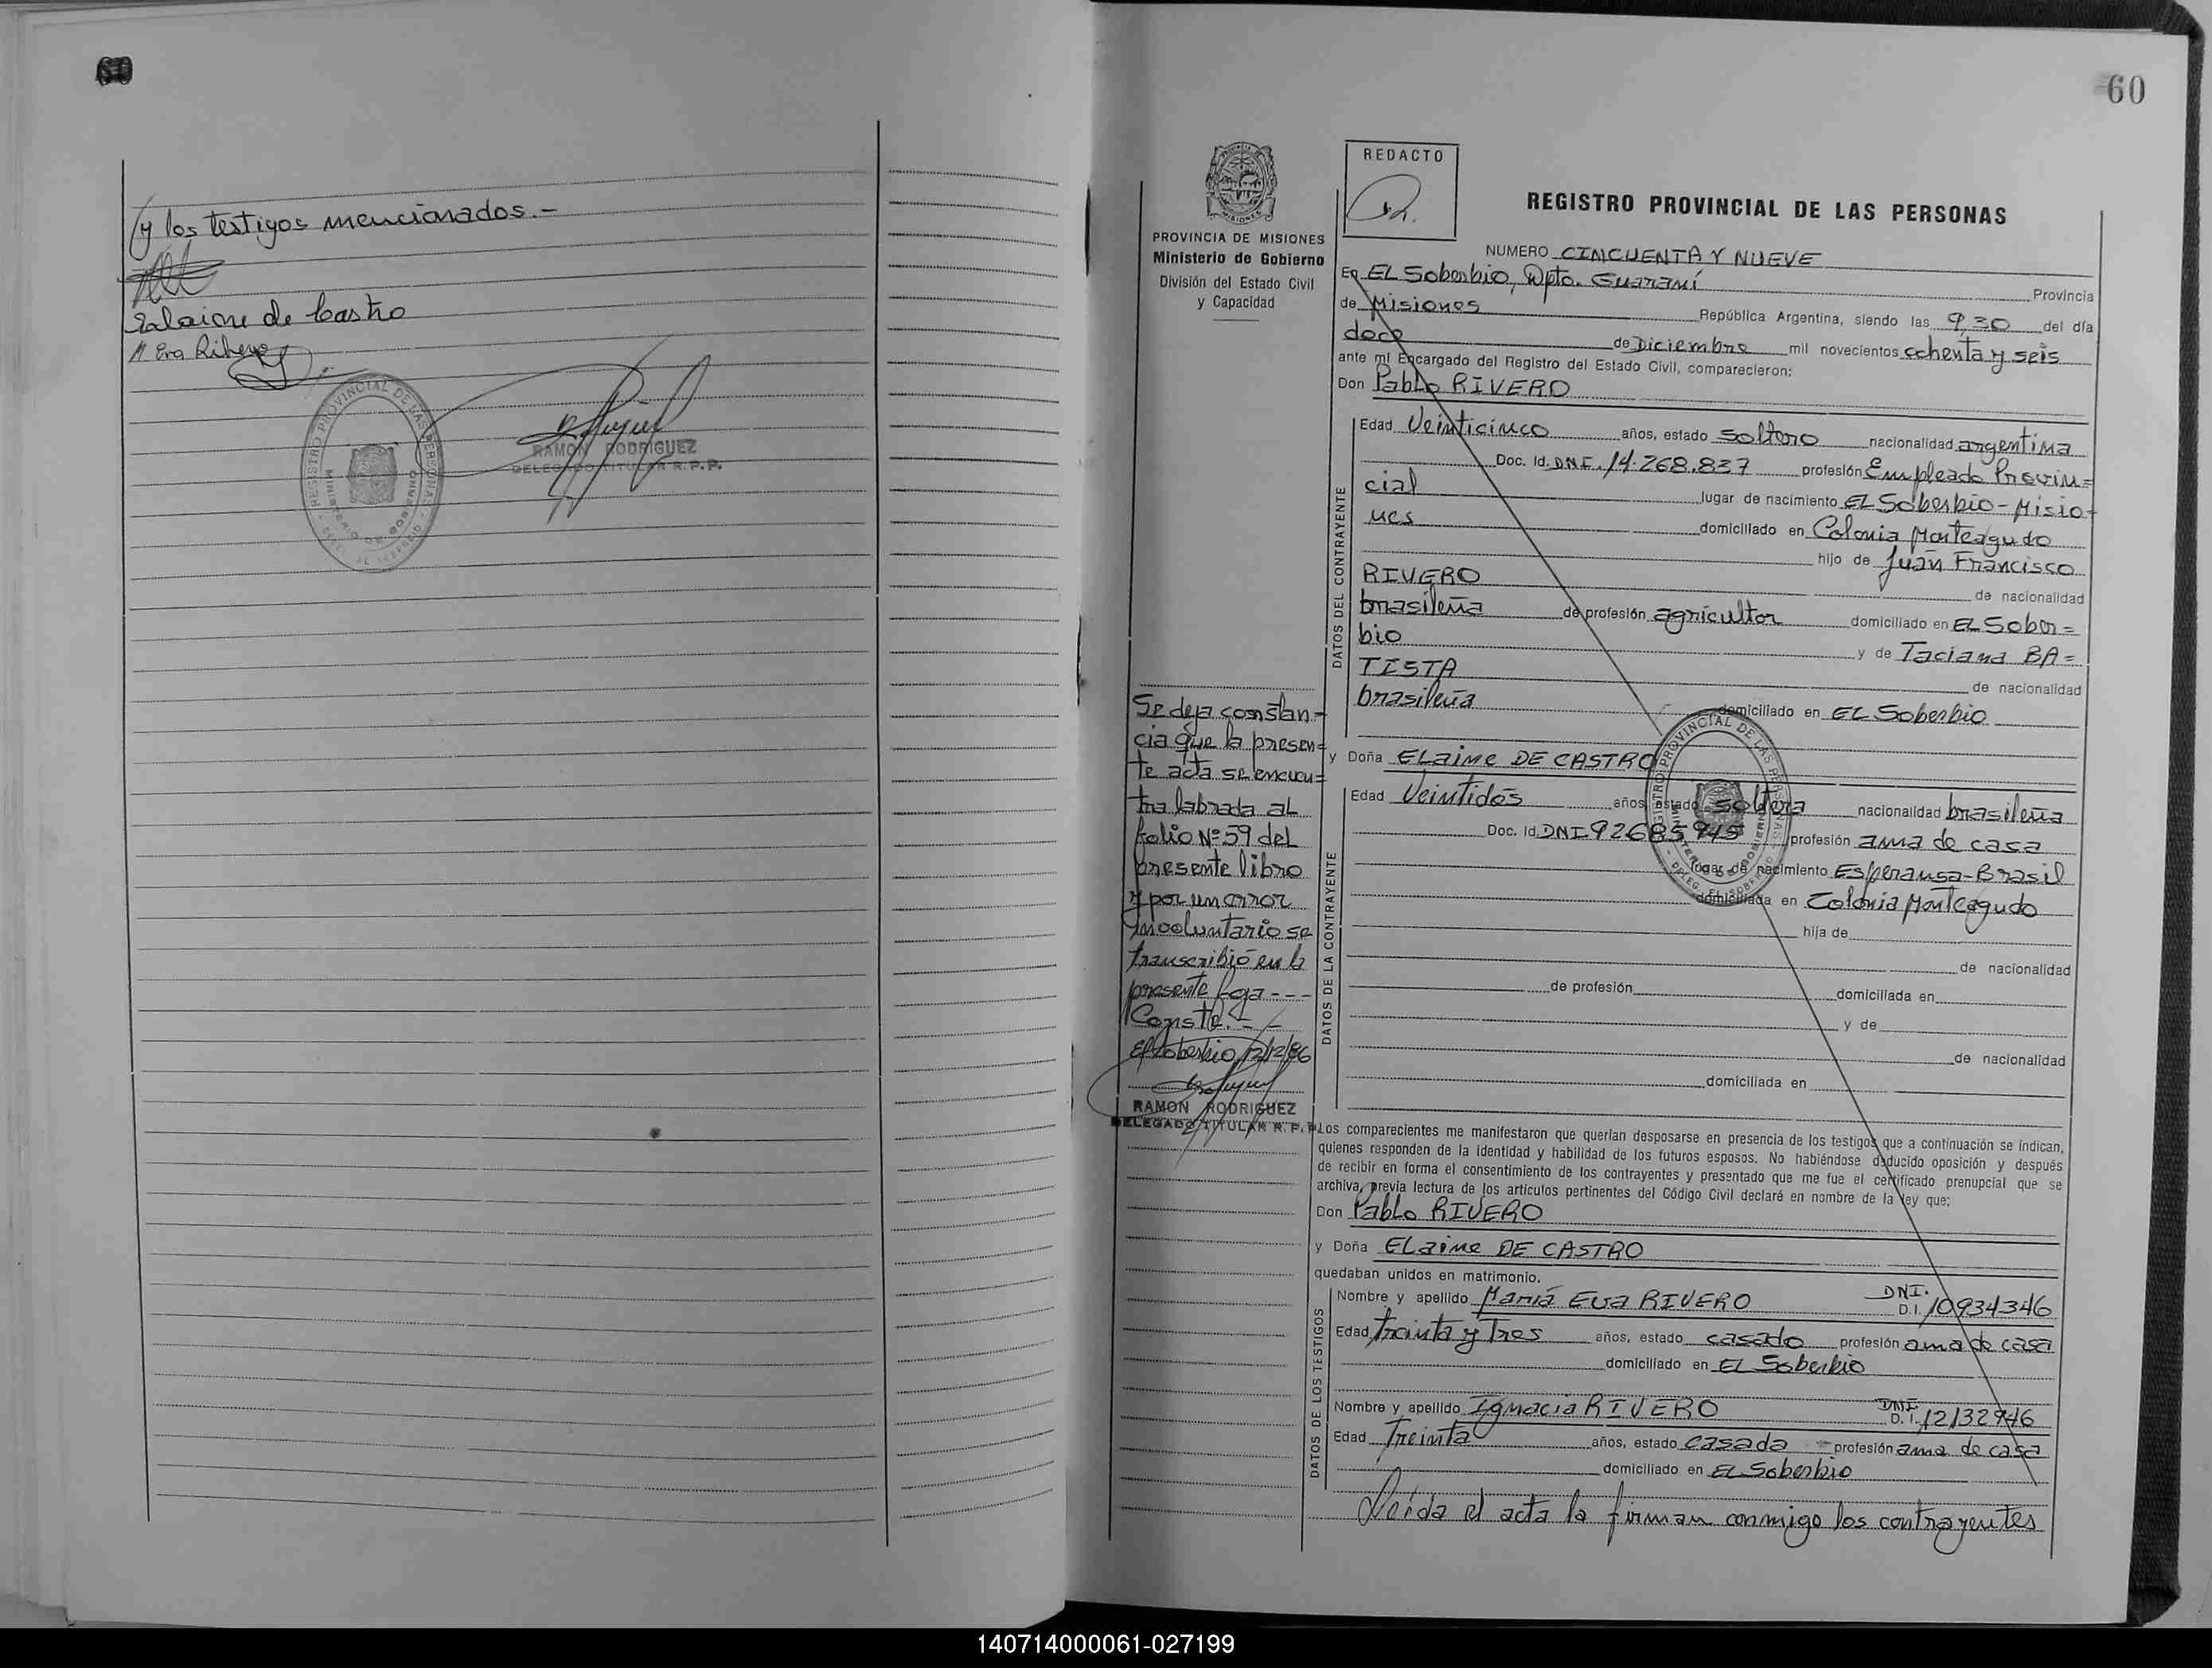 60
(y los testigos mencionados.-
Elaine de Castro
M Eva Ribero
REGISTRO PROVINCIAL DE LAS PERSONAS
MINISTERIO DE GOBIERNO
RAMON RODRIGUEZ
DELEGADO TITULAR R.P.P.
60
PROVINCIA DE MISIONES
Ministerio de Gobierno
División del Estado Civil
y Capacidad
REDACTO
REGISTRO PROVINCIAL DE LAS PERSONAS
NUMERO CINCUENTA Y NUEVE
En EL Soberbio, Dpto. Guaraní Provincia
de Misiones República Argentina, siendo las 9,30 del día
doce de Diciembre mil novecientos ochenta y seis
ante mí Encargado del Registro del Estado Civil, comparecieron:
Don Pablo RIVERO
DATOS DEL CONTRAYENTE
Edad Veinticinco años, estado soltero nacionalidad argentina
Doc. Id. DNI. 14.268.837 profesión Empleado Provin=
cial lugar de nacimiento EL Soberbio-Misio-
nes domiciliado en Colonia Monteagudo
hijo de Juan Francisco
RIVERO de nacionalidad
brasileña de profesión agricultor domiciliado en EL Sober=
bio y de Taciana BA=
TISTA de nacionalidad
brasileña domiciliado en EL Soberbio
y Doña ELaine DE CASTRO
DATOS DE LA CONTRAYENTE
Edad Veintidós años, estado soltera nacionalidad brasileña
Doc. Id. DNI-92685945 profesión ama de casa
lugar de nacimiento Esperansa-Brasil
domiciliada en Colonia Monteagudo
hija de
de nacionalidad
de profesión domiciliada en
y de
de nacionalidad
domiciliada en
REGISTRO PROVINCIAL DE LAS PERSONAS
MINISTERIO DE GOBIERNO
DELEG. EL SOBERBIO
Se deja constan=
cia que la presen=
te acta se encuen=
tra labrada al
folio Nº 59 del
presente libro
y por un error
involuntario se
transcribió en la
presente foja---
Conste.--
El Soberbio, 12/12/86
RAMON RODRIGUEZ
DELEGADO TITULAR R.P.P.
Los comparecientes me manifestaron que querían desposarse en presencia de los testigos que a continuación se indican,
quienes responden de la identidad y habilidad de los futuros esposos. No habiéndose deducido oposición y después
de recibir en forma el consentimiento de los contrayentes y presentado que me fue el certificado prenupcial que se
archiva, previa lectura de los artículos pertinentes del Código Civil declaré en nombre de la ley que:
Don Pablo RIVERO
y Doña ELaine DE CASTRO
quedaban unidos en matrimonio.
DATOS DE LOS TESTIGOS
Nombre y apellido María Eva RIVERO DNI. D.I. 10934346
Edad treinta y Tres años, estado casado profesión ama de casa
domiciliado en EL Soberbio
Nombre y apellido Ignacia RIVERO DNI D.I. 12132946
Edad Treinta años, estado casada profesión ama de casa
domiciliado en EL Soberbio
Leída el acta la firman conmigo los contrayentes
140714000061-027199